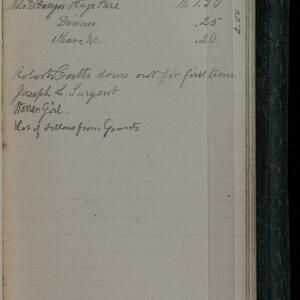 Milo & Bangor Stage Fare $1.30
Dinner .25
.20
2.00
Robert Coatts down out for first time
Joseph L. Sargent
Warren Girl.
Lot of fellows from Grants